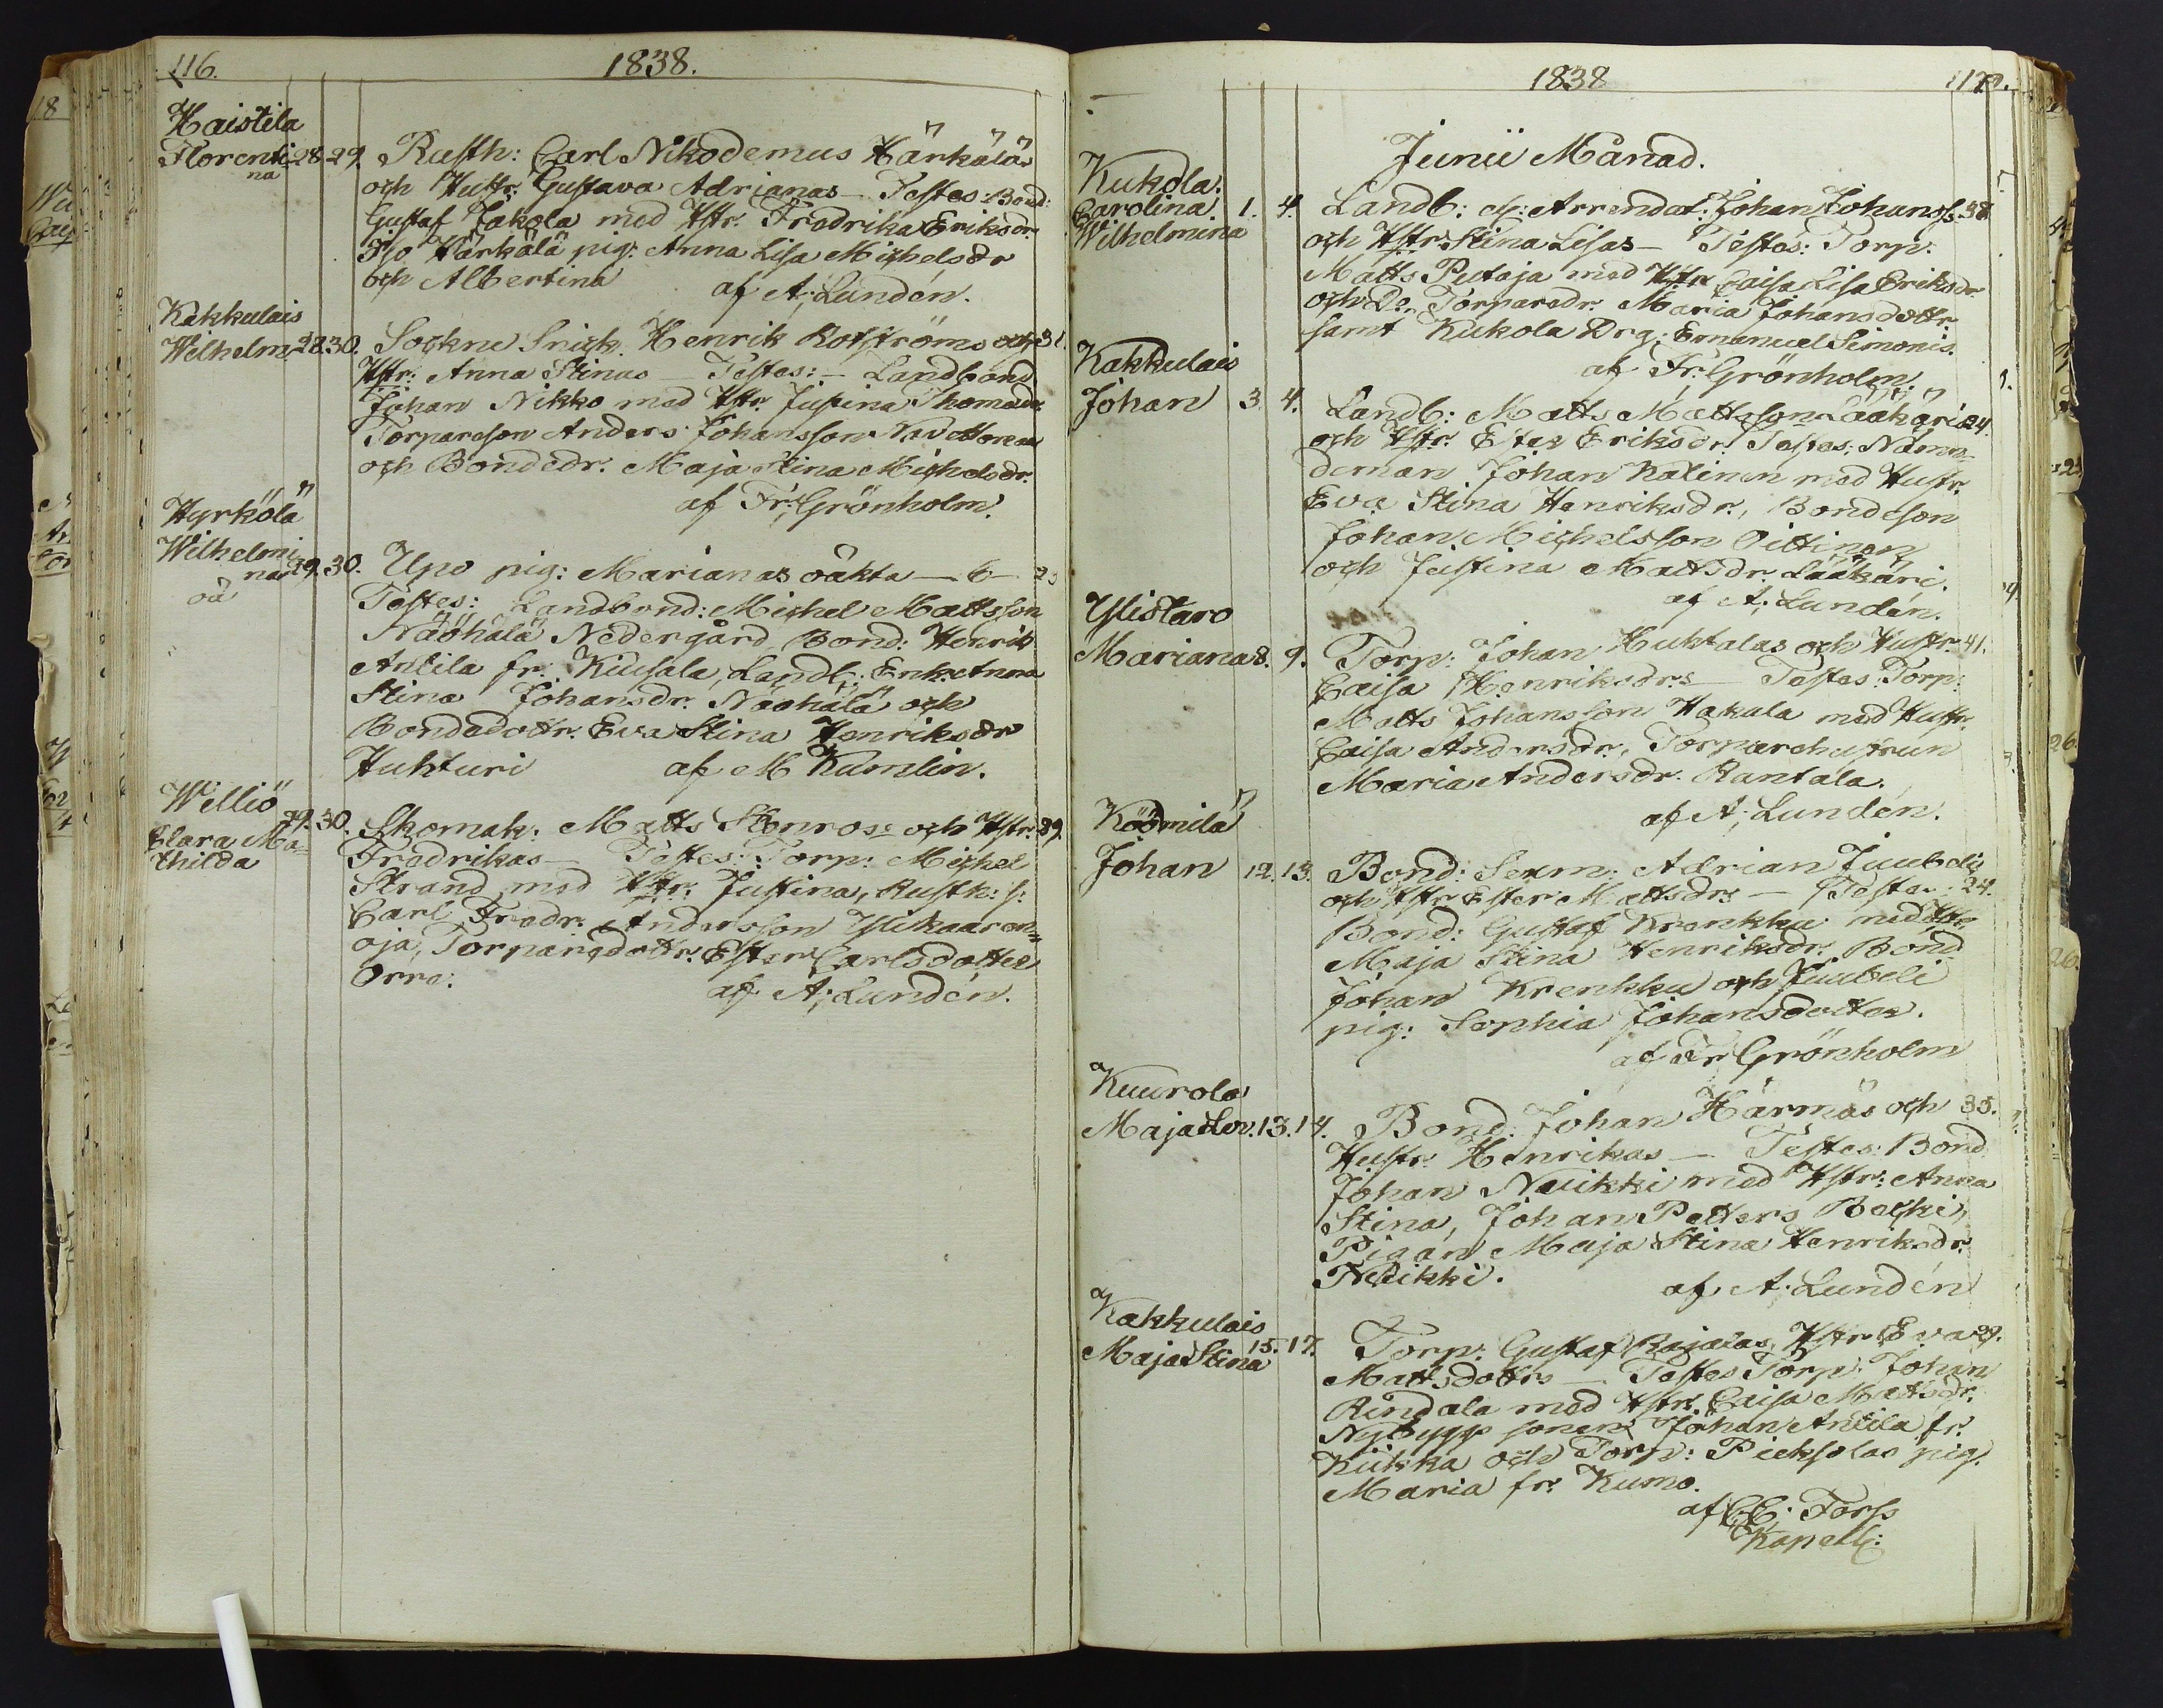 116.
1838.
Haistila
Florenti 28. 29. Rusth: Carl Nikodemus Härkäläs
na
och Hustr. Gustava Adrianas – Testes: Bond:
Gustaf Jakola med Hstr. Fredrika Eriksdr.
Härkälä pig: Anna Lisa Michelsdr
och Albertina af A; Lundén.
Kakkulais
Wilhelm 28. 30. Sockne Henrik Rotströms och 31.
Hstr: Anna Stinas – Testes: – Landbond
Johan Nikko med Hstr. Justina Thomasdr.
Torpareson Anders Johansson
och Bondedr. Maja Stina Michelsdr.
af Fr; Grönholm.
Hyrkölä
Wilhelmi
nas 29. 30. Upo pig: Marianas oäkta – 6 – 23
oä
Testes: Landbond: Michel Mattsson
Näöhälä Nedergård, Bond: Henrik
Antila fr. Kiusala, Landb: Enk: Anna
Stina Johansdr. Näöhälä och
Bondedottr. Eva Stina Henriksdr
Huhturi af M Kumlin.
Williö
29. 30. Skomak: Matts Stenros: och Hstr. 39.
Clara Ma=
thilda
Fredrikas – Testes: Torp: Michel
Strand med Hstr. Justina, Rusth: s:
Carl Fredr. Andersson Ylikaaron=
oja, Torparedottr. Ester Carlsdotter
Orre: af A; Lundén.
1838
Junii Månad.
Kukola.
Carolina 1. 4. Landb: Arrendat: Johan Johanss: 38
Wilhelmina
och Hstr Stina Lisas – Testes: Torp:
Matts Putaja med Hstr Caisa Lisa Eriksdr
och Do. Torparedr. Maria Johansdottr.
samt Kukola Drg: Emanuel Simonis.
af Fr: Grönholm.
Kakkulais
Johan 3. 4. Landb: Matts Mattsson Lääkäri 24.
och Hstr. Ester Eriksdr. Testes: Nämn=
deman Johan Kalinen med Hustr.
Eva Stina Henriksdr., Bondeson
Johan Michelsson Oittinen
och Justina Mattsdr. Lääkäri.
af A; Lundén.
Ylistaro
Mariana 8. 9. Torp: Johan Huktalas och Hustr. 41.
Caisa Henriksdrs – Testes: Torp:
Matts Johansson Hakala med Hustr.
Caisa Andersdr., Torparehustrun
Maria Andersdr. Rantala.
af A; Lundén.
Köömilä
Johan 12. 13. Bond: Sexm: Adrian Juubelis
och Hstr Ester Mattsdrs – Testes: 24.
Bond: Gustaf Krenkku med Hstr
Maja Stina Henriksdr. Bond
Johan Krenkku och Juubeli
pig: Sophia Johansdotter.
af Fr Grönholm
Kuurola
Maja Lov. 13. 14. Bond. Johan Härmäs och 35.
Hustr. Henrikas – Testes: Bond
Johan Nuikki med Hstr: Anna
Stina, Johan Petters Becki,
Pigan Maja Stina Henriksdr.
Nuikki. af A. Lundén
Kakkulais
Maja Stina 15. 17. Torp: Gustaf Rajalas, Hstr Eva 29.
Mattsdottrs – Testes Torp: Johan
Rindala med Hstr. Caisa Mattsdr.
Nybygg sonen Johan Antila fr.
Kiikka och Torp: Pieksolas pig.
Maria fr. Kumo.
af C.C. Forss
Kapell: